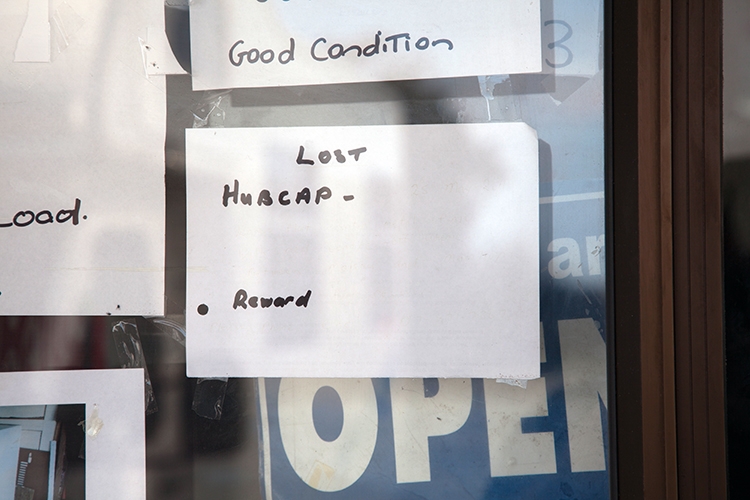 Good Condition
3
Lost
HUBCAP -
Load.
Reward
an
OPEN